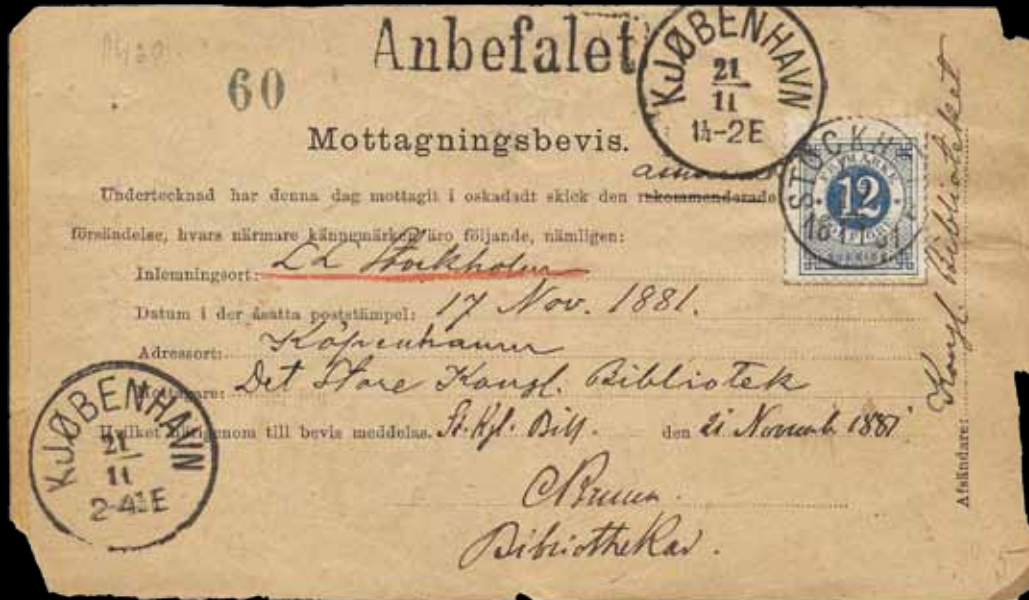 Anbefalet
60
KJØBENHAVN
21
11
1½-2E
Mottagningsbevis.
Undertecknad har denna dag mottagit i oskadadt skick den rekommenderade
försändelse, hvars närmare kännemärken äro följande, nämligen:
Inlemningsort: LL Stockholm
Datum i der åsatta poststämpel: 17 Nov. 1881.
Adressort: Köpenhamn
Mottagare: Det Store Kongl. Bibliotek
Hvilket härigenom till bevis meddelas. St. Kgl. Bibl. den 21 Novemb. 1881
CBruun.
Bibliothekar.
STOCKH
18 11 81
FRIMÄRKE
12
TOLF ÖRE
SVERIGE
KJØBENHAVN
21
11
2-4E
Afsändare: Kongl. Biblioteket